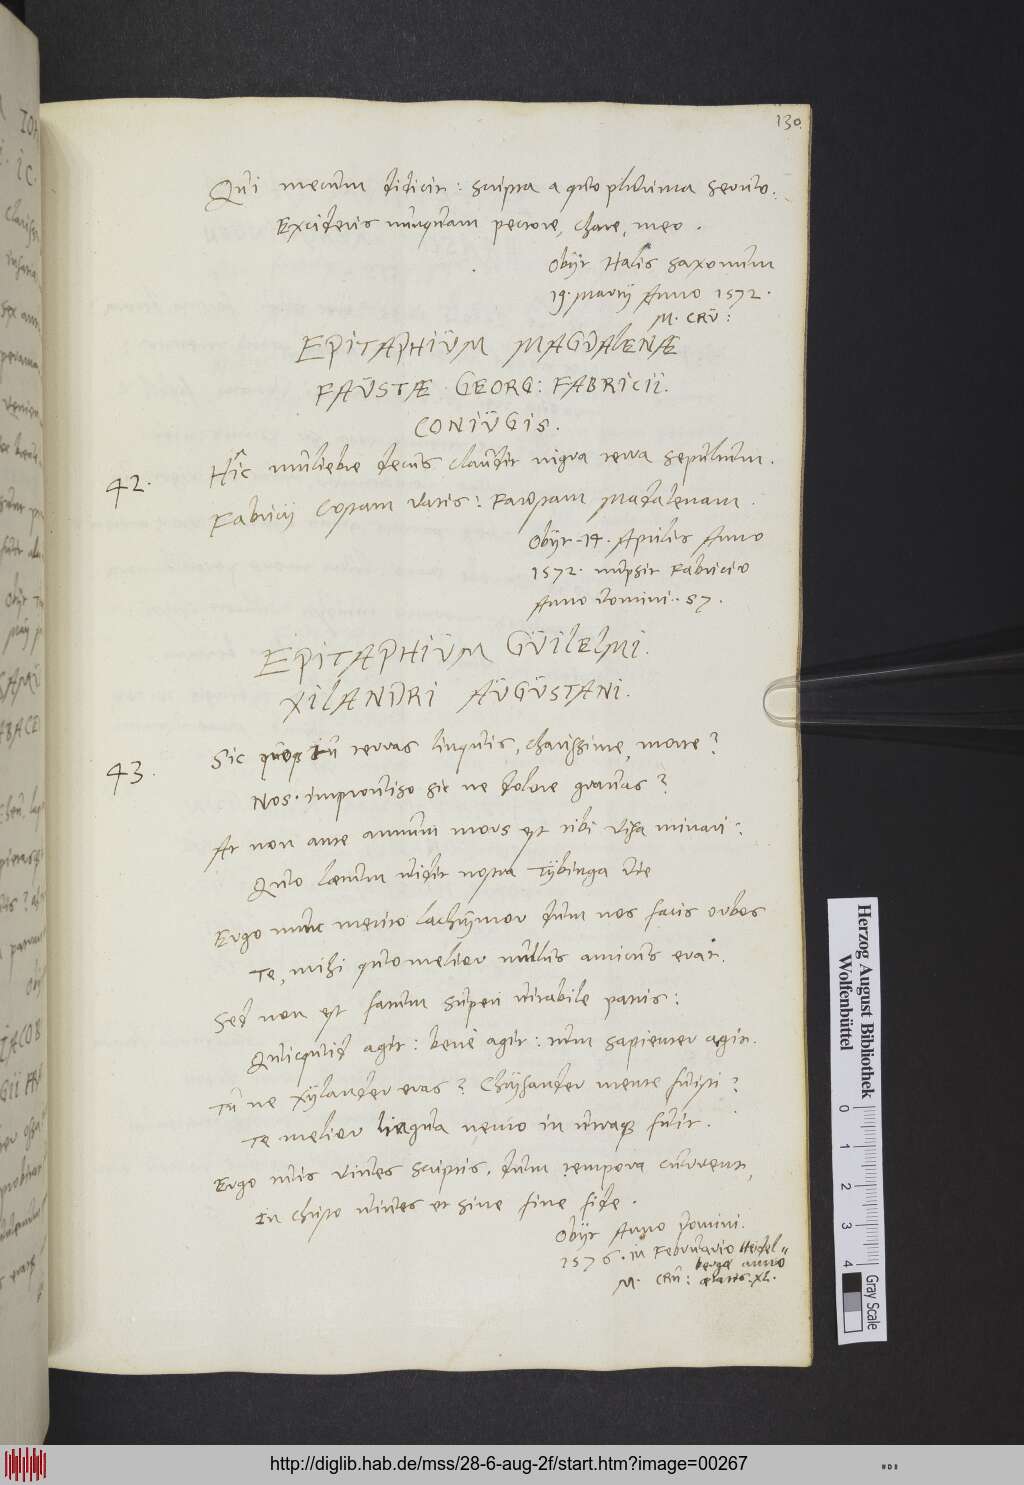 130.
Qui mecum didicit: scripta a quo plurima servo:
Excideris nunquam pectore, chare, meo.
Obijt Halis Saxonum
19. Martij Anno 1572.
M. CRU:
EPITAPHIUM MAGDALENÆ
FAUSTÆ GEORG: FABRICII.
CONIUGIS.
42. Hîc muliebre decus claudit nigra terra sepultum.
Fabricij Costam vatis: Faustam Madalenam.
Obijt 14. Aprilis Anno
1572. nupsit Fabricio
Anno domini. 57.
EPITAPHIUM GUILELMI.
XILANDRI AUGUSTANI.
43. Sic quoqꝫ tu terras linquis, charissime, morte?
Nos improviso sic ne dolore gravas?
At non ante annum mors est tibi visa minari:
Quo laetum vidit nostra Tybinga die
Ergo nunc merito lachrymor dum nos facis orbos
Te, mihi quo melior nullus amicus erat.
Sed non est factum superi mirabile patris:
Quicquid agit: bene agit: cum sapienter agit.
Tu ne Xylander eras? Chrysander mente fuisti?
Te melior lingua nemo in utraqꝫ fuit.
Ergo tuis vives scriptis, dum tempora current,
In Christo vives et sine fine fide.
Obijt Anno domini.
1576. in Februario Heidel=
bergæ anno
M. CRU: ætatis. XL.
Herzog August Bibliothek
Wolfenbüttel
0 1 2 3 4
Gray Scale
http://diglib.hab.de/mss/28-6-aug-2f/start.htm?image=00267